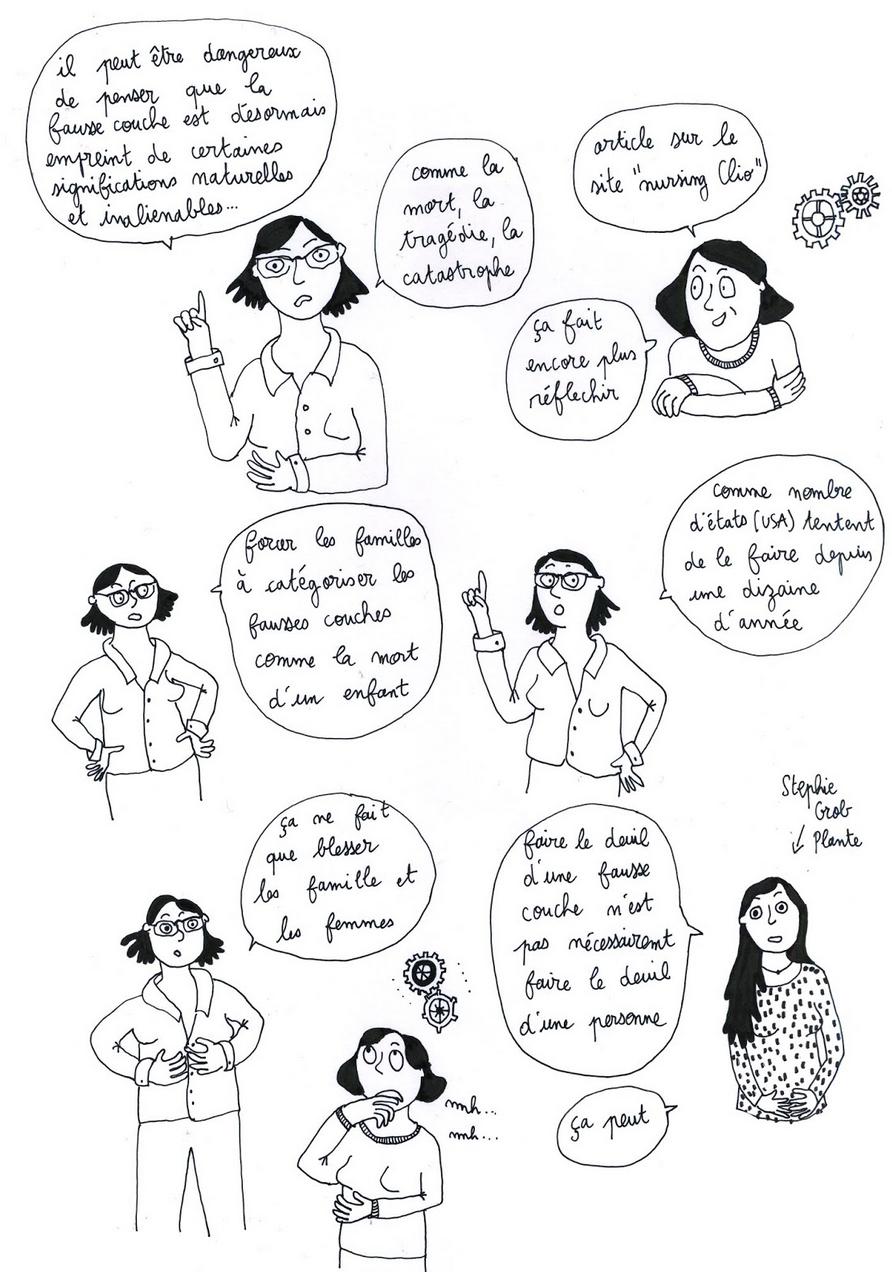 il peut être dangereux
de penser que la
fausse couche est désormais
empreint de certaines
significations naturelles
et inaliénables...
comme la
mort, la
tragédie, la
catastrophe
article sur le
site "nursing Clio"
ça fait
encore plus
réflechir
forcer les familles
à catégoriser les
fausses couches
comme la mort
d'un enfant
comme nombre
d'états (USA) tentent
de le faire depuis
une dizaine
d'année
ça ne fait
que blesser
les famille et
les femmes
mh...
mh...
faire le deuil
d'une fausse
couche n'est
pas nécessairemt
faire le deuil
d'une personne
ça peut
Stephie
Grob
Plante